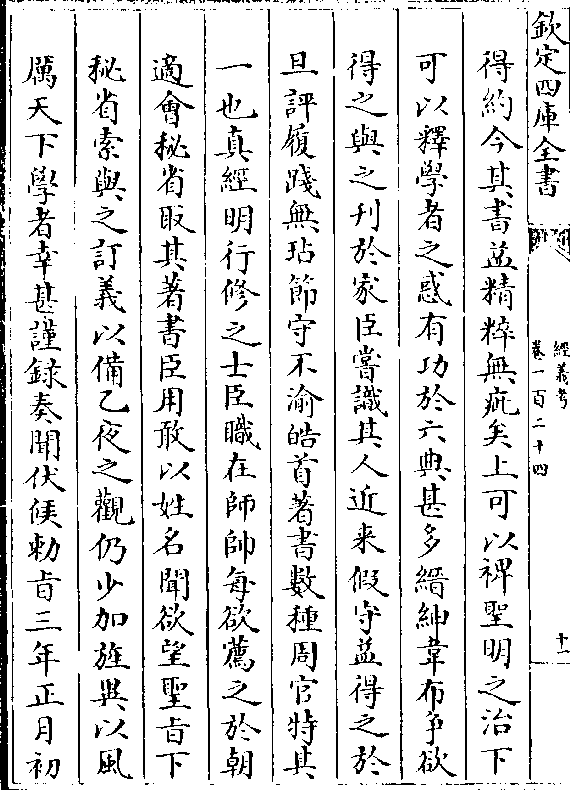 欽定四庫全書
經義考
卷一百二十四
十一
得約今其書益精粹無疵矣上可以裨聖明之治下
可以釋學者之惑有功於六典甚多縉紳韋布争欲
得之與之刊於家臣嘗識其人近来假守益得之於
旦評履踐無玷節守不渝皓首著書數種周官特其
一也真經明行修之士臣職在師帥每欲薦之於朝
適會秘省取其著書臣用敢以姓名聞欲望聖旨下
秘省索與之訂義以備乙夜之觀仍少加旌異以風
厲天下學者幸甚謹録奏聞伏候勅旨三年正月初